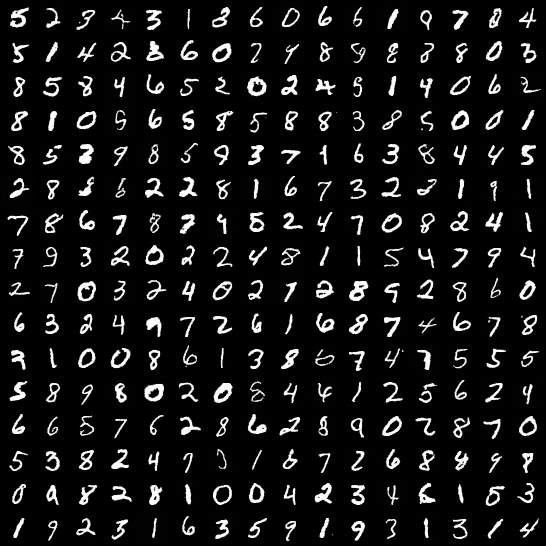 5 2 3 4 3 1 8 6 0 6 6 1 9 7 8 4
5 1 4 2 8 6 0 7 9 8 9 8 8 8 0 3
8 5 8 4 6 5 2 0 2 4 9 1 4 0 6 2
8 1 0 9 6 5 8 5 8 8 3 8 5 0 0 1
8 5 2 9 8 5 9 3 7 1 6 3 8 4 4 5
2 8 8 6 2 2 8 1 6 7 3 2 2 1 9 1
7 8 6 7 8 7 9 5 2 4 7 0 8 2 4 1
7 9 3 2 0 2 2 4 8 1 1 5 4 7 9 4
2 7 0 3 2 4 0 2 7 2 8 9 2 8 6 0
6 3 2 4 9 7 2 6 1 6 8 7 4 6 7 8
3 1 0 0 8 6 1 3 8 6 7 4 7 5 5 5
5 8 9 8 0 2 0 8 4 4 1 2 5 6 2 4
6 6 5 7 6 2 8 6 2 8 9 0 2 8 7 0
5 3 8 2 4 7 1 6 7 2 6 8 8 9 8
0 9 8 2 8 1 0 0 4 2 3 4 6 1 5 3
1 9 2 3 1 6 3 5 9 1 9 3 1 3 1 4